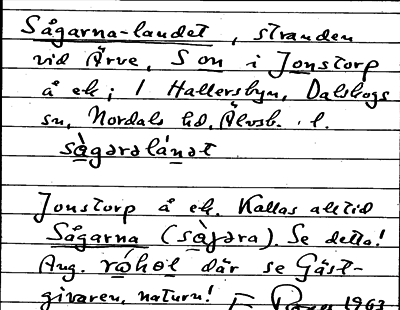 Sågarna-landet, stranden
vid Ärve, S om i Jonstorp
å ek; 1 Hallersbyn, Dalskogs
sn, Nordals hd, Älvsb. l.
sågərəlánət
Jonstorp å ek. Kallas alltid
Sågarna (sàgəra). Se detta!
Aug. råhol där se Gäst-
givaren, naturn!
1963